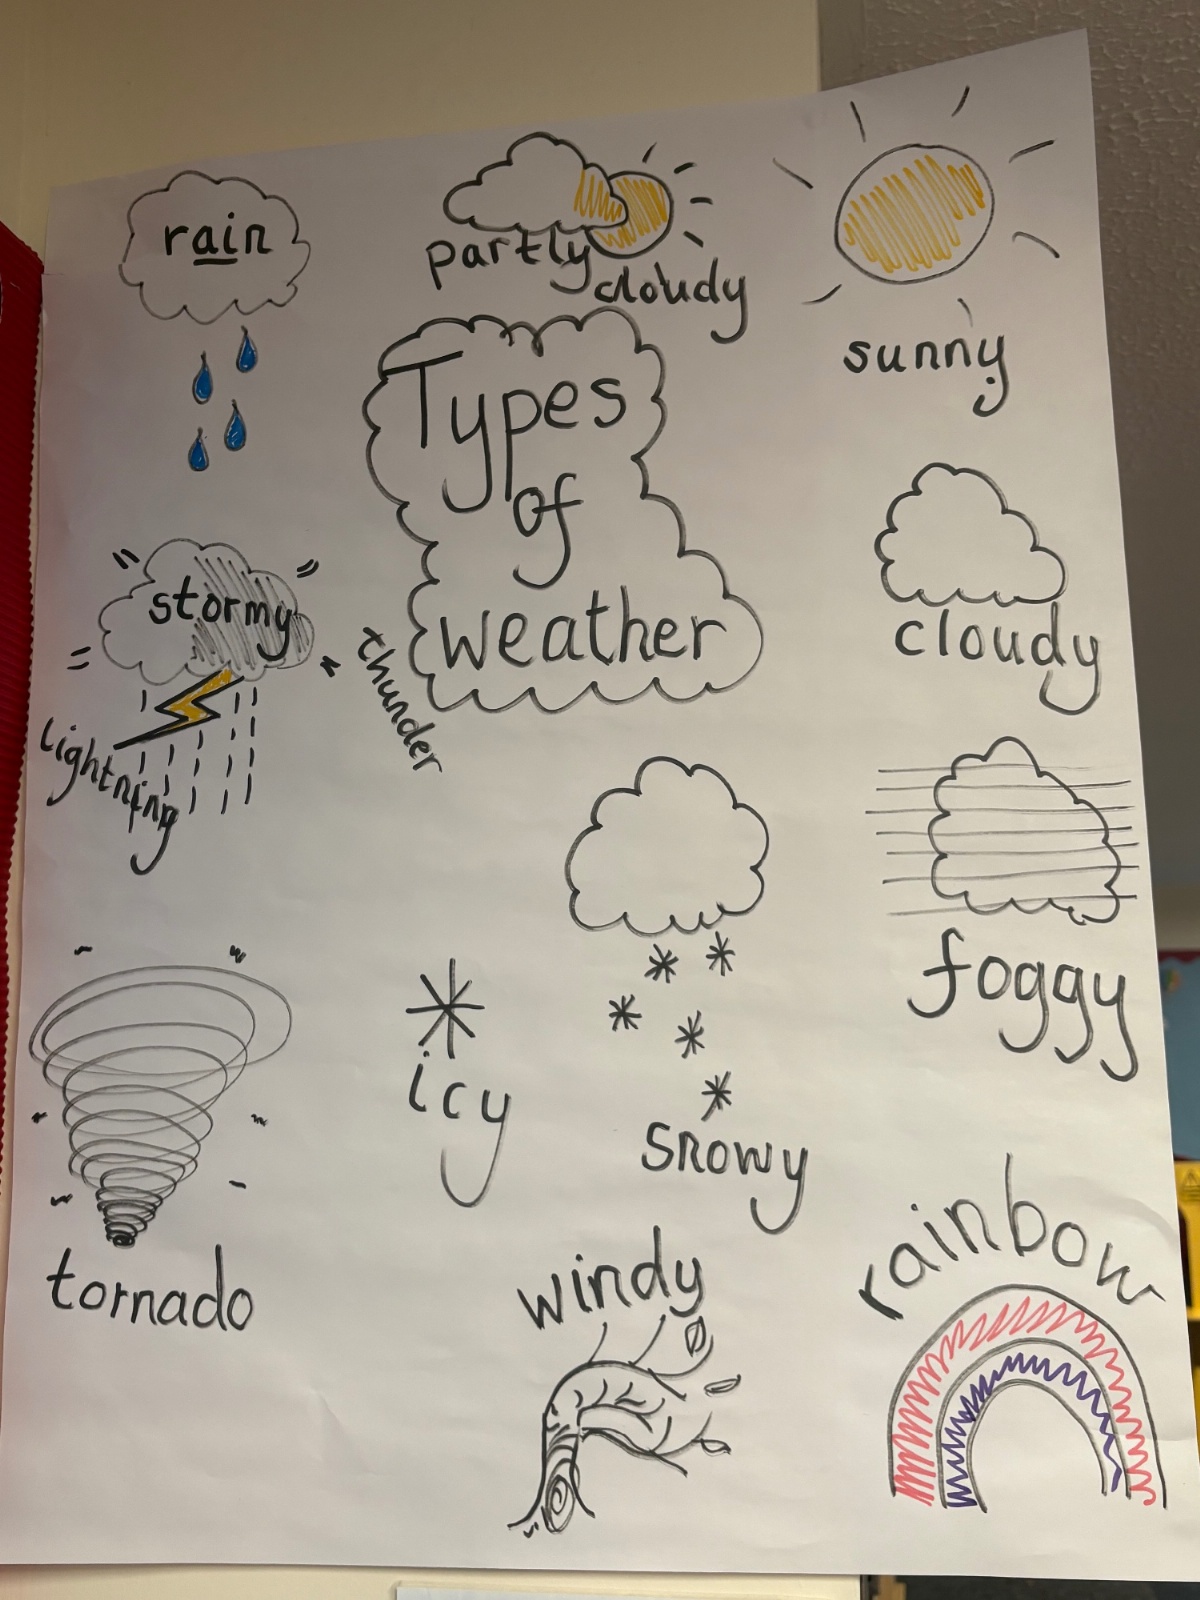 rain
partly
cloudy
sunny
Types
of
weather
stormy
thunder
lightning
cloudy
foggy
snowy
icy
tornado
windy
rainbow